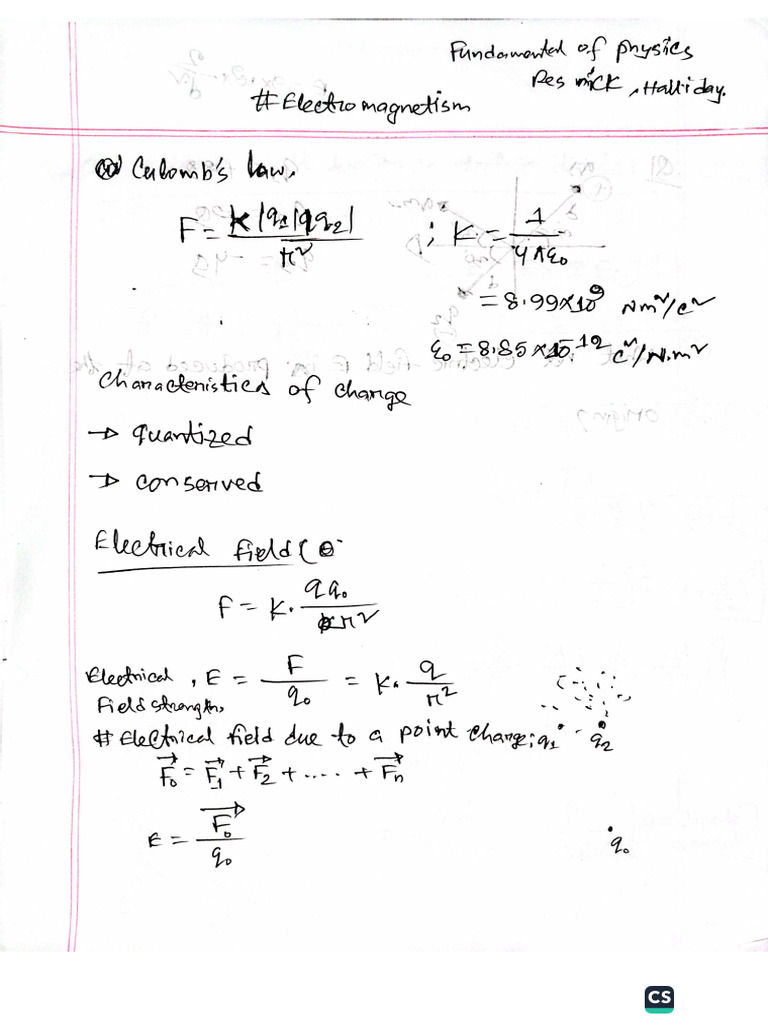 Fundamental of physics
Resnick, Halliday.
# Electromagnetism
Culomb's law,
F = K|q1||q2| / r² ; K = 1 / 4πε0
= 8.99×10⁹ Nm²/C²
ε0 = 8.85×10⁻¹² C²/N.m²
Characteristics of charge
→ quantized
→ conserved
Electrical field (
F = K. qq0 / r²
Electrical, E = F / q0 = K. q / r²
Field strength,
# Electrical field due to a point charge; q1 q2
F0 = F1 + F2 + .... + Fn
E = F0 / q0
q0
CS